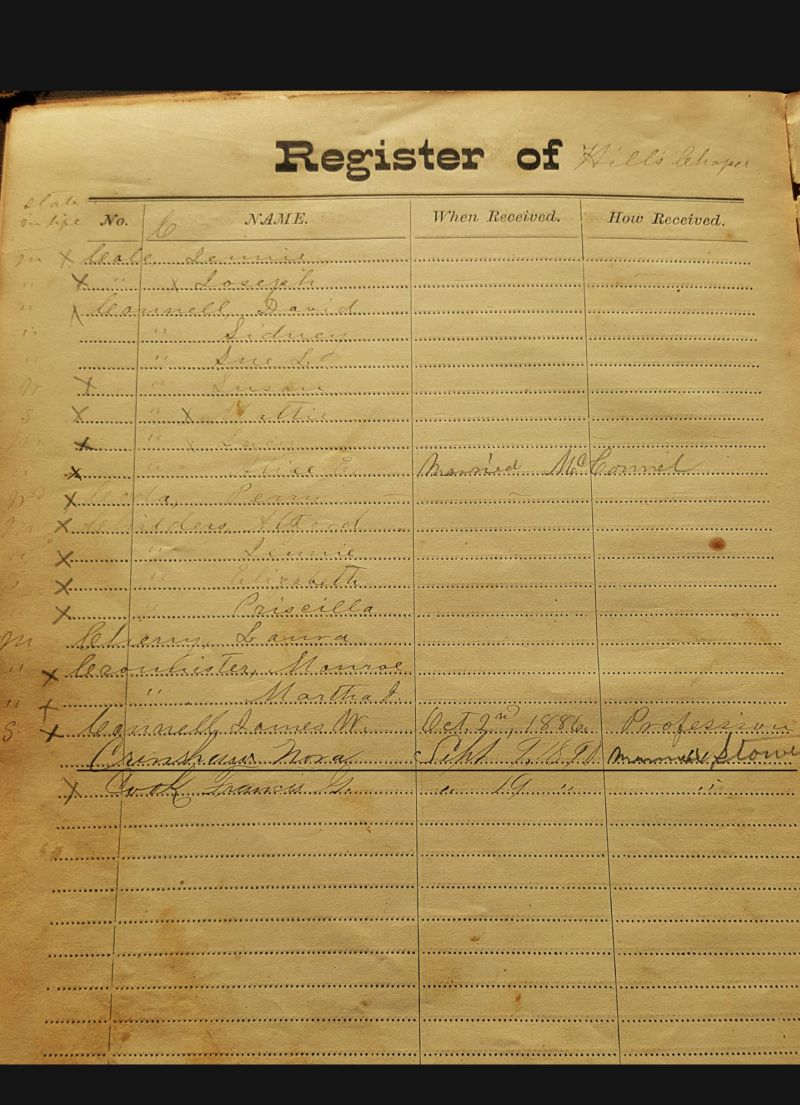 Register of Hill's Chapel
State
in life No. NAME. When Received. How Received.
C
m x Cole, Jennie
" x " x Joseph
" x Connell, David
" " Sidney
" " Sue L.
W x " Susan
S x " x Mattie
x " x
" x " Married McConnel
x Perry
m x Childers, Alford
" x " Jennie
x " Elizabeth
x " Priscilla
m Cherry, Laura
" x Monroe
" x " Martha J.
S x Connell, James W. Oct. 2nd, 1886. Profession
Crenshaw Nora Sept 9, 1890 married Stowe
x Cook Francis G. " 19 " "